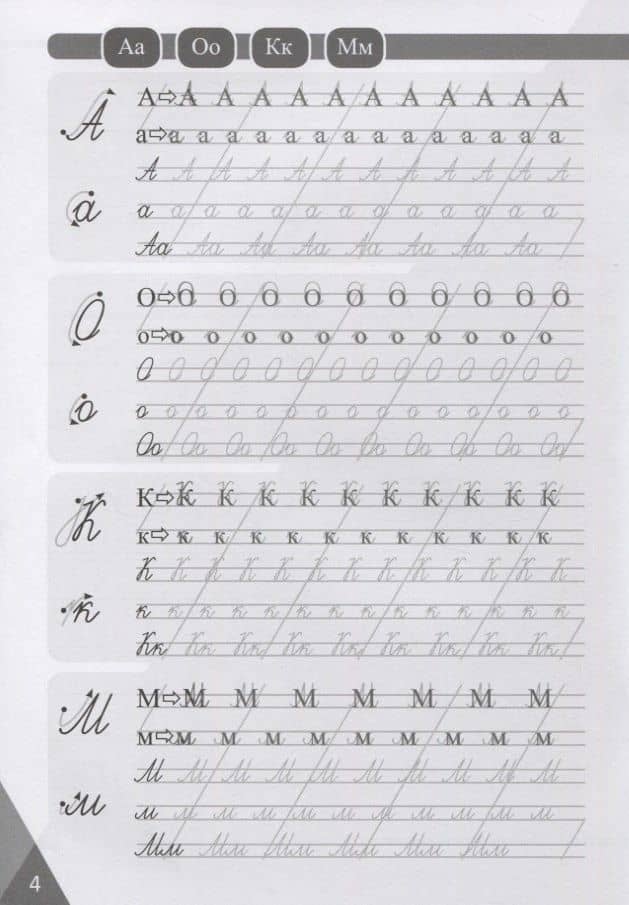 Аа Оо Кк Мм
А
а
А⇨А А А А А А А А А А А
а⇨а а а а а а а а а а а а а а
А А А А А А А А А А А А
а а а а а а а а а а а а а
Аа Аа Аа Аа Аа Аа Аа Аа
О
о
О⇨О О О О О О О О О О
о⇨о о о о о о о о о о о
О О О О О О О О О О О О О О
о о о о о о о о о о о о о о о
Оо Оо Оо Оо Оо Оо Оо Оо Оо Оо
К
к
К⇨К К К К К К К К К К
к⇨к к к к к к к к к к к
К К К К К К К К К К К К К
к к к к к к к к к к к к к к
Кк Кк Кк Кк Кк Кк Кк Кк Кк
М
м
М⇨М М М М М М М
м⇨м м м м м м м м м
М М М М М М М М М М
м м м м м м м м м м м
Мм Мм Мм Мм Мм Мм
4